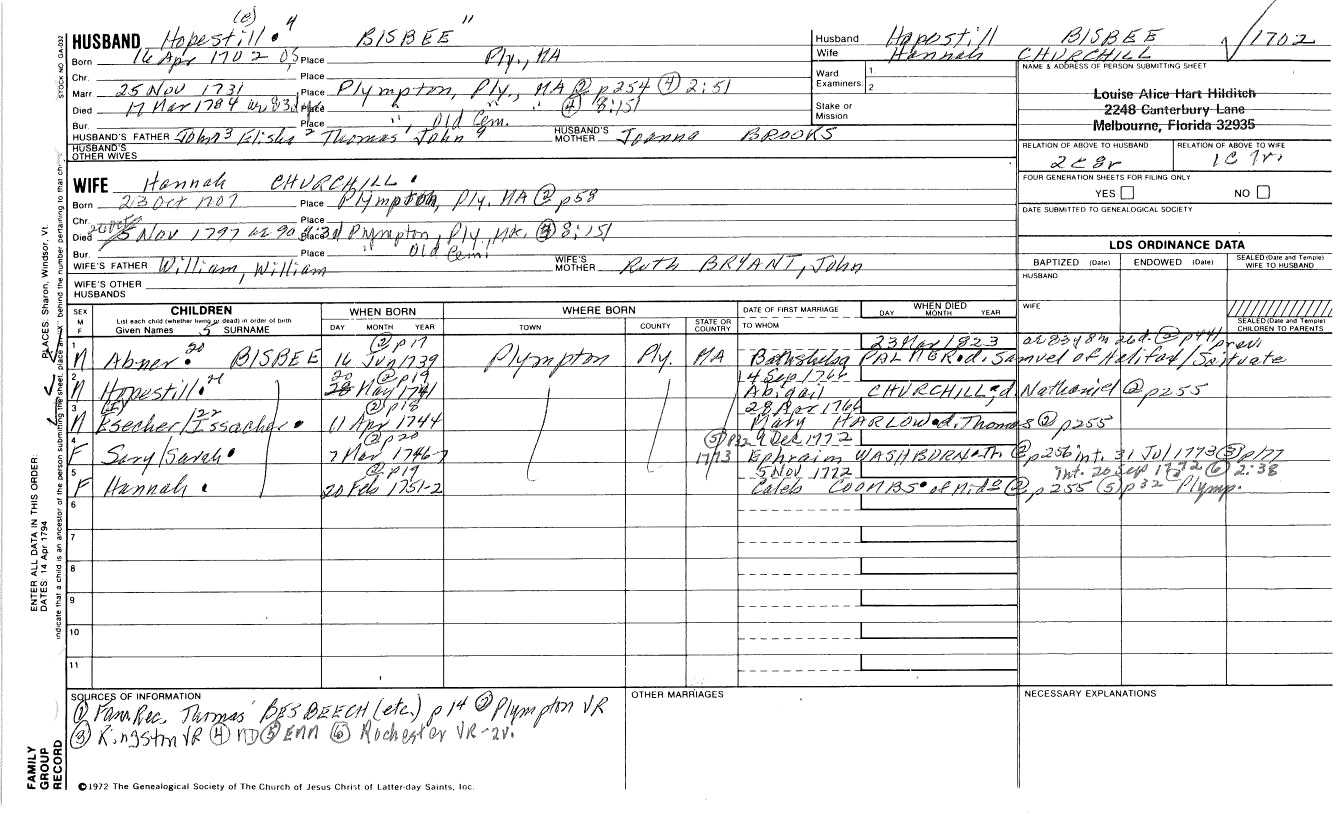 (e) 4 "
HUSBAND Hopestill BISBEE
Born 16 Apr 1702 OS Place Ply, MA
Chr. Place
Marr 25 NOV 1731 Place Plympton, Ply., MA ② p254 ④ 2:51
Died 17 Mar 1784 Place " , " " ④ 8:151
Bur. Place " , Old Cem.
HUSBAND'S FATHER John³ Elisha² Thomas, John HUSBAND'S MOTHER Joanna BROOKS
HUSBAND'S OTHER WIVES
WIFE Hannah CHURCHILL
Born 23 Oct 1707 Place Plympton, Ply. MA ② p58
Chr. Place
Died 5 Nov 1797 ae 90 Place Plympton, Ply, MA. 8:151
Bur. Place " Old Cem.
WIFE'S FATHER William, William WIFE'S MOTHER Ruth BRYANT, John
WIFE'S OTHER HUSBANDS
Husband Hopestill BISBEE √1702
Wife Hannah CHURCHILL
Ward Examiners: 1 2
Stake or Mission
NAME & ADDRESS OF PERSON SUBMITTING SHEET
Louise Alice Hart Hilditch
2248 Canterbury Lane
Melbourne, Florida 32935
RELATION OF ABOVE TO HUSBAND RELATION OF ABOVE TO WIFE
2C8r 1C7r.
FOUR GENERATION SHEETS FOR FILING ONLY
YES NO
DATE SUBMITTED TO GENEALOGICAL SOCIETY
LDS ORDINANCE DATA
BAPTIZED (Date) ENDOWED (Date) SEALED (Date and Temple) WIFE TO HUSBAND
HUSBAND
WIFE
SEALED (Date and Temple) CHILDREN TO PARENTS
SEX M F
CHILDREN
List each child (whether living or dead) in order of birth
Given Names 5 SURNAME
WHEN BORN
DAY MONTH YEAR
WHERE BORN
TOWN COUNTY STATE OR COUNTRY
DATE OF FIRST MARRIAGE
TO WHOM
WHEN DIED
DAY MONTH YEAR
② p17 23 Mar 1823 ae 83y 8m 26d. ② p441
1 M Abner 20 BISBEE 16 Jun 1739 Plympton Ply. MA Bathsheba PALMER d. Samuel of Halifax/Scituate
20 ② p19 4 Sep 1766
2 M Hopestill 21 28 May 1741 Abigail CHURCHILL d. Nathaniel ② p255
② p18 28 Apr 1766
3 M Esecher/Issacher 22 11 Apr 1744 Mary HARLOW d. Thomas ② p255
② p20 ⑤ p32 9 Dec 1772
4 F Sary/Sarah 7 Mar 1746-7 1773 Ephraim WASHBURN ② p256 int. 31 Jul 1773 ③ p177
② p19 5 Nov 1772 int. 20 Sep 1772 ⑥ 2:38
5 F Hannah 20 Feb 1751-2 Caleb COOMBS of Mid ② p255 ⑤ p32 Plymp.
6
7
8
9
10
11
SOURCES OF INFORMATION
① Fam. Rec. Thomas BESBEECH (etc.) p 14 ② Plympton VR
③ Kingston VR ④ MD ⑤ EMM ⑥ Rochester VR-2v.
OTHER MARRIAGES
NECESSARY EXPLANATIONS
©1972 The Genealogical Society of The Church of Jesus Christ of Latter-day Saints, Inc.
STOCK NO. GA-032
PLACES: Sharon, Windsor, Vt.
ENTER ALL DATA IN THIS ORDER:
DATES: 14 Apr 1794
FAMILY GROUP RECORD